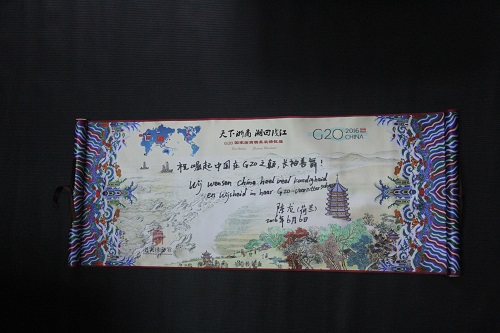 天下浙商
G20 2016
CHINA
祝崛起中国在G20之巅,长袖善舞!
Wij wensen China heel veel kundigheid
En Wijsheid in haar G20-voorzitterschap
龙(荷兰)
2016年6月6日